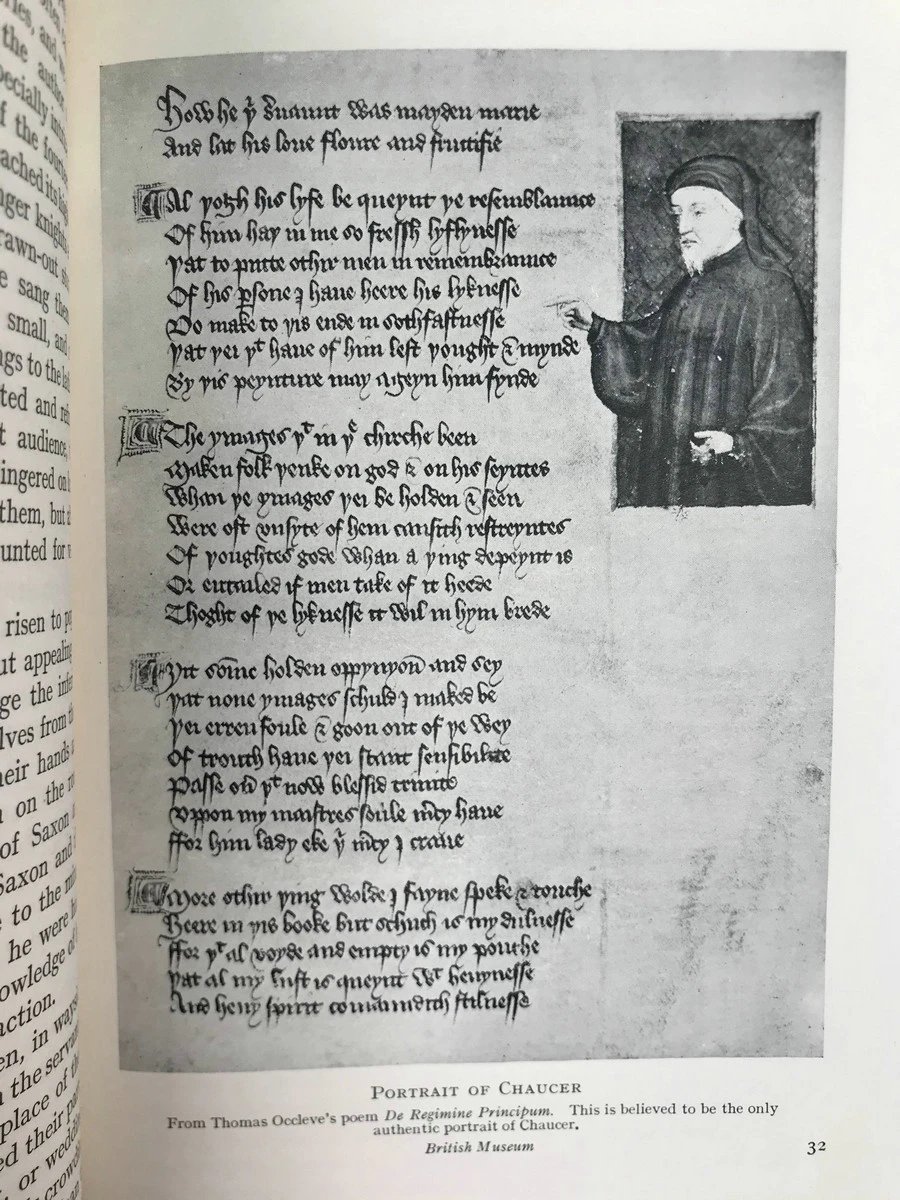 the author
of the four
sang
small, and
to the
ted and
audience,
them, but
unted for
risen to
ut appealing
the
from
their hands
on the
of Saxon
Saxon and
to the
he were
knowledge of
action.
in ways
the
place of the
their
or
How he yr seruaunt was mayden marie
And lat his loue floure and fructifie
Al yogh his lyfe be queynt ye resemblaunce
Of him hay in me so fressh lyflynesse
Yat to putte othir men in remembraunce
Of his psone I haue heere his lyknesse
Do make to yis ende in sothfastnesse
Yat yei yt haue of him left yought & mynde
By yis peynture may ageyn him fynde
The ymages yt in yr chirche been
Maken folk yenke on god & on his seyntes
Whan ye ymages yei be holden & seen
Were oft vnsyte of hem causith restreyntes
Of youghtes gode whan a ying depeynt is
Or entailed if men take of it heede
Thoght of ye lyknesse it wil in hym brede
Yit some holden oppynyon and sey
Yat none ymages schuld I maked be
Yei erren foule & goon out of ye wey
Of trouth haue yei scant sensibilite
Passe ouer yt now blessid trinite
Vppon my maistres soule mcy haue
ffor him lady eke yr mcy I craue
More othir ying wolde I fayne speke & touche
Heere in yis booke but schuch is my dulnesse
ffor yt al voyde and empty is my pouche
Yat al my lust is queynt wt heuynesse
And heuy spirit comaundith stilnesse
PORTRAIT OF CHAUCER
From Thomas Occleve's poem De Regimine Principum. This is believed to be the only
authentic portrait of Chaucer.
British Museum
32